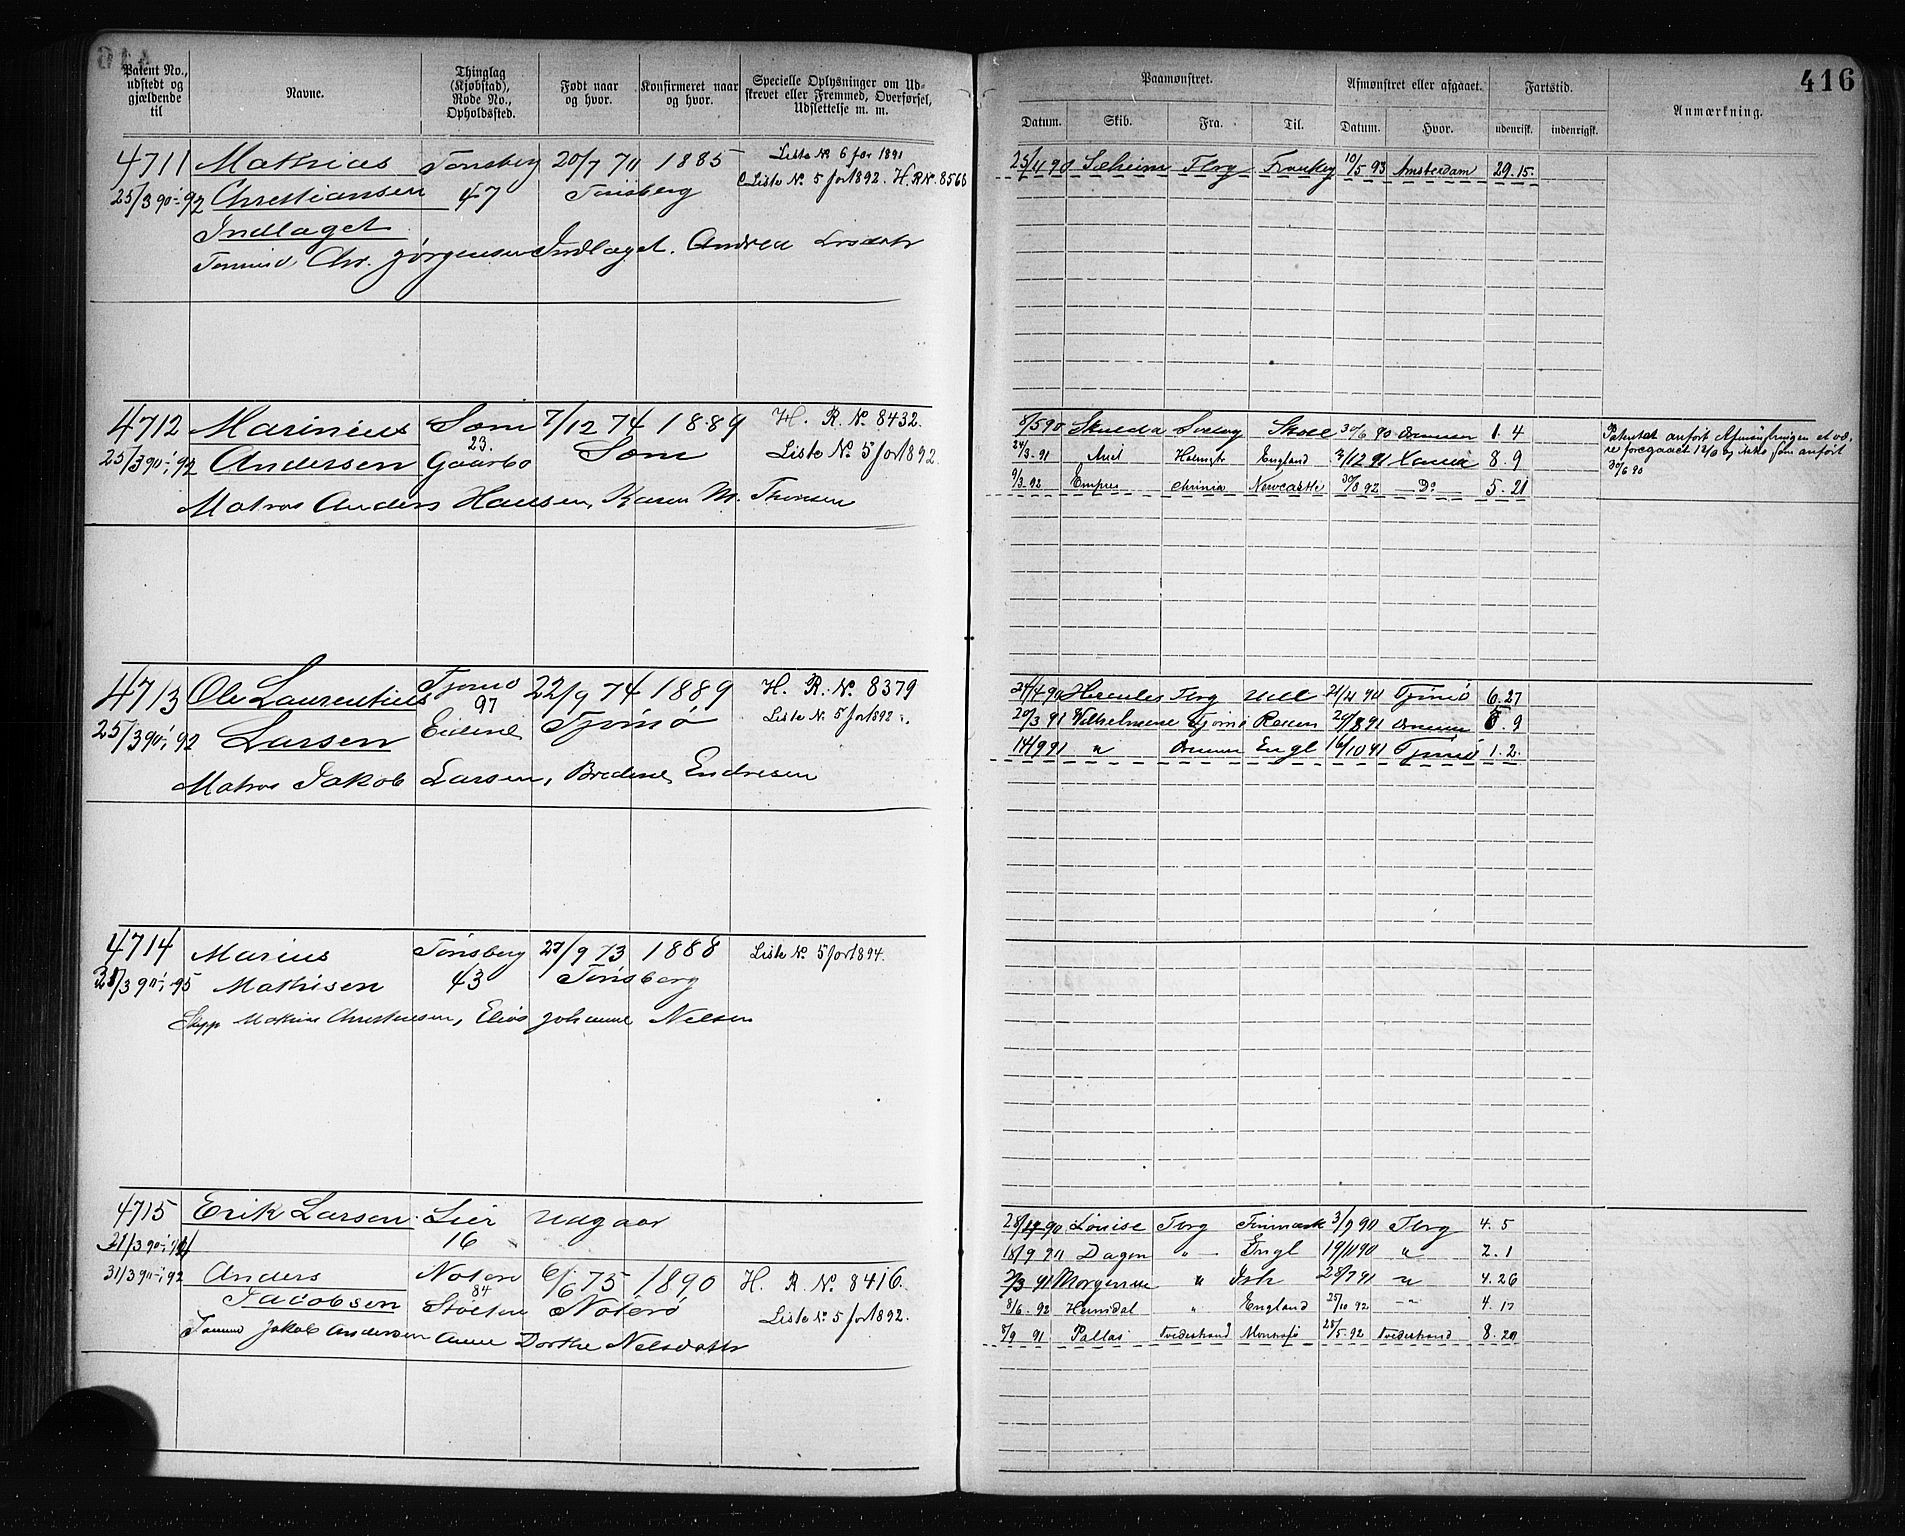 416
Patent No., udstedt og gjældende til
Navne.
Thinglag (Kjøbstad), Rode No., Opholdssted.
Født naar og hvor.
Konfirmeret naar og hvor.
Specielle Oplysninger om Udskrevet eller Fremmed, Overførsel, Udslettelse m. m.
Paamønstret.
Afmønstret eller afgaaet.
Fartstid.
Anmærkning.
Datum. Skib. Fra. Til. Datum. Hvor. udenrisk. indenrigsk.
4711 Mathias Tønsberg 20/7 70 1885 Liste No 6 for 1891
25/3 90-i 92 Christiansen 47 Tønsberg Liste No 5 for 1892. H. R No. 8568
Indlaget
Tømmd Chr. Jørgensen Indlaget. Andrea
25/4 90 Sæheim Tbrg 10/5 93 Amsterdam 29.15
4712 Marinius Sæm 7/12 74 1889 H. R. No 8432.
25/3 90-i 92 Andersen 23. Gaarbo Sæm Liste No 5 for 1892.
Matros Anders Hansen, Karen M. Thoresen
8/5 90 Skulda 30/6 90 1. 4
24/3. 91 England 3/12 91 8. 9
9/3. 92 Newcastle 30/8 92 Do 5. 21
30/6 90
4713 Ole Laurentius Tjømø 22/9 74 1889 H. R. No. 8379
25/3 90-i 92 Larsen 97 Eidene Tjømø Liste No. 5 for 1892.
Matros Jakob Larsen, Bredine Endresen
24/4 90 Hercules Tbrg Udl 21/11 90 Tjømø 6. 27
20/3 91 Vilhelmine Tjømø 29/8 91 9
14/9 91 " Engl 16/10 91 Tjømø 1. 2.
4714 Marius Tønsberg 27/9 73 1888 Liste No. 5 for 1894.
31/3 90-i 95 Mathisen 43 Tønsberg
Skipp Mathias Christensen, Johanne Nelsen
4715 Erik Larsen Lier Udgaar
21/3 90-i 16
31/3 90-i 92 Anders Jacobsen Nøterø 84 6/6 75 1890 H. R. No. 8416.
Nøterø Liste No. 5 for 1892.
Tømmd Jakob Andersen Anne Dorthe Nelsdatter
90 Louise Tbrg Finmark 3/9 90 Tbrg 4. 5
18/9 90 Dagen " Engl 19/11 90 " 2. 1
91 " 28/7 91 " 4. 26
8/6. 92 Heimdal " England 25/10 92 " 4. 17
8/9 91 Pallas Tvedestrand 28/5. 92 Tvedestrand 8. 20